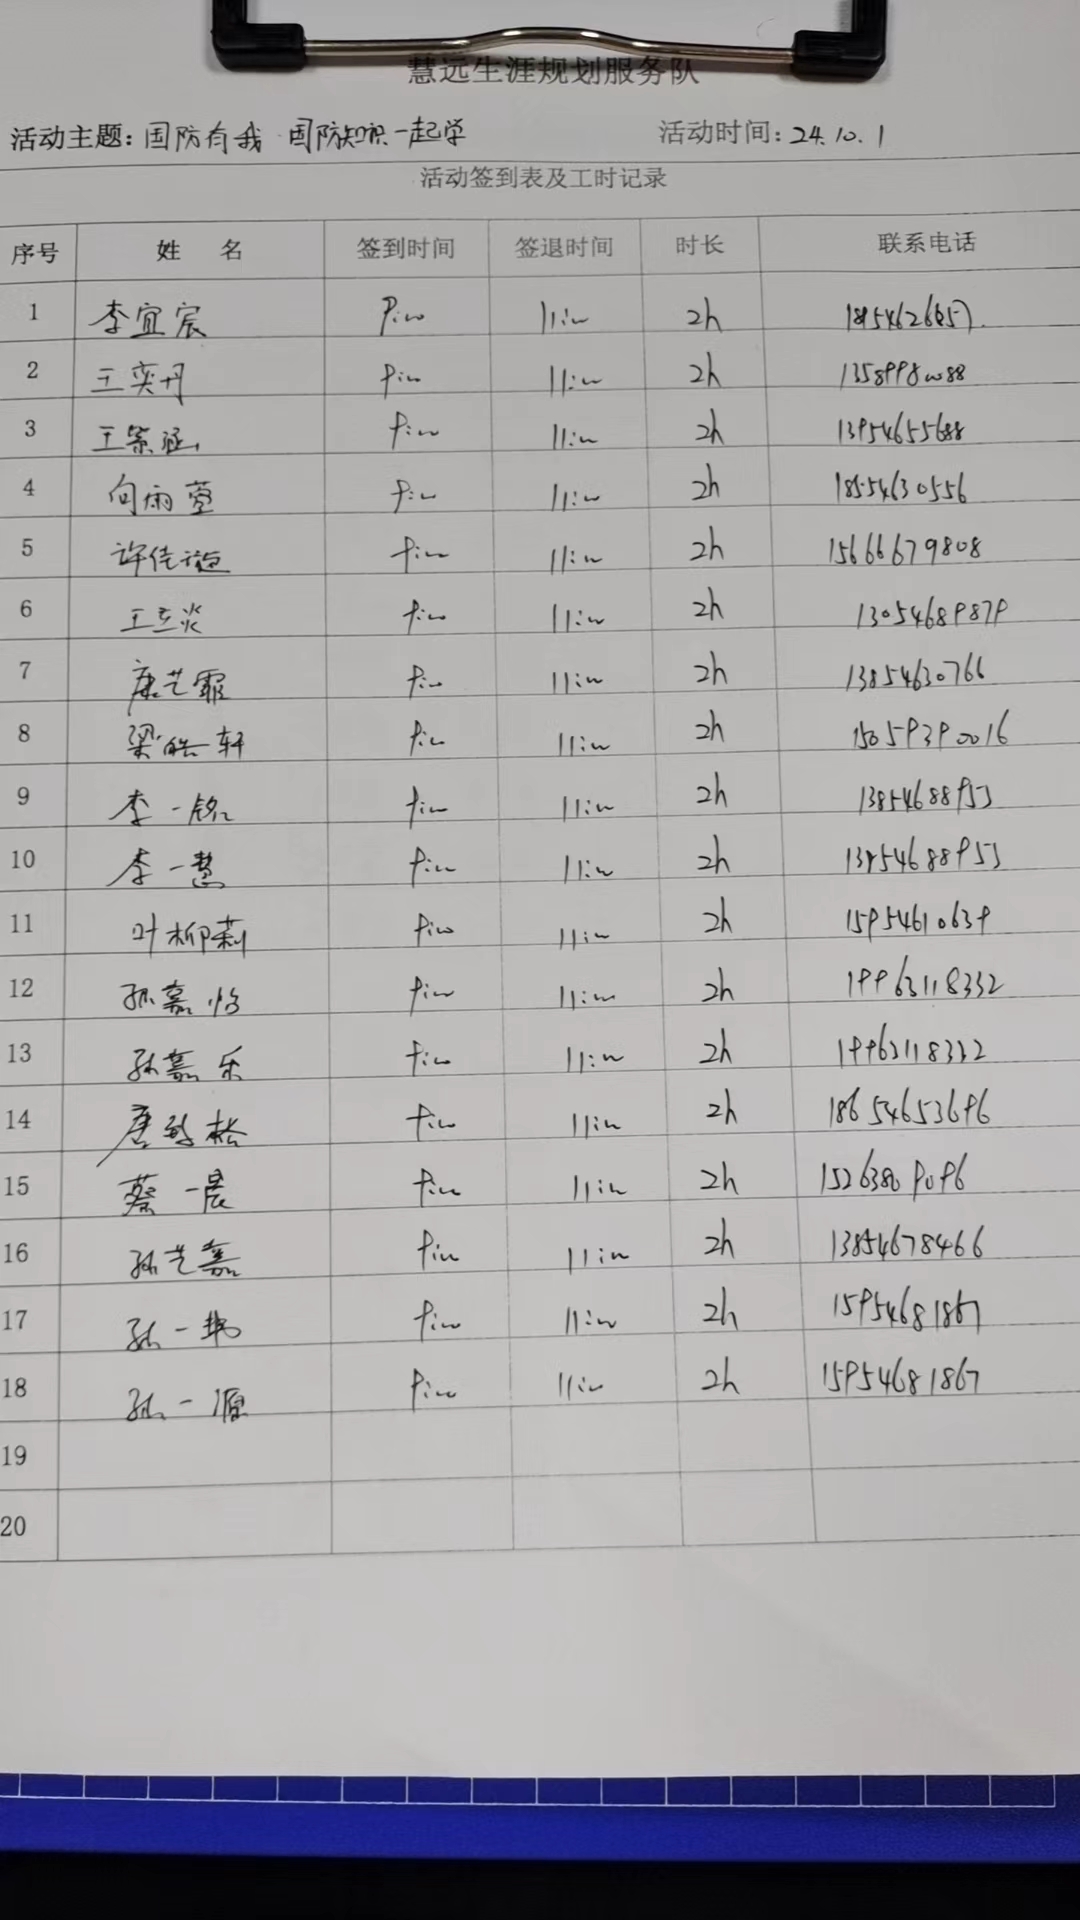 慧远生涯规划服务队
活动主题: 国防有我 国防知识一起学 活动时间: 24.10.1
活动签到表及工时记录
序号 姓 名 签到时间 签退时间 时长 联系电话
1 李宜宸 9:00 11:00 2h
2 王奕丹 9:00 11:00 2h 13589980088
3 王紫涵 9:00 11:00 2h 13954655688
4 向雨萱 9:00 11:00 2h 18554630556
5 许佳 9:00 11:00 2h 15666679808
6 王 炎 9:00 11:00 2h 13054689879
7 康艺霏 9:00 11:00 2h 13854630766
8 梁皓轩 9:00 11:00 2h 15059390016
9 李一铭 9:00 11:00 2h 13854688953
10 李一慧 9:00 11:00 2h 13854688953
11 叶柳莉 9:00 11:00 2h 15954610639
12 孙嘉怡 9:00 11:00 2h 19963118332
13 孙嘉乐 9:00 11:00 2h 19963118332
14 唐 松 9:00 11:00 2h 18654653696
15 蔡一晨 9:00 11:00 2h 15263809096
16 孙艺嘉 9:00 11:00 2h 13854678466
17 孙一 9:00 11:00 2h 15954681867
18 孙一源 9:00 11:00 2h 15954681867
19
20